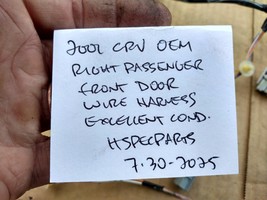 2001 CRV OEM
RIGHT PASSENGER
FRONT DOOR
WIRE HARNESS
EXCELLENT COND.
HSPECPARTS
7-30-2025